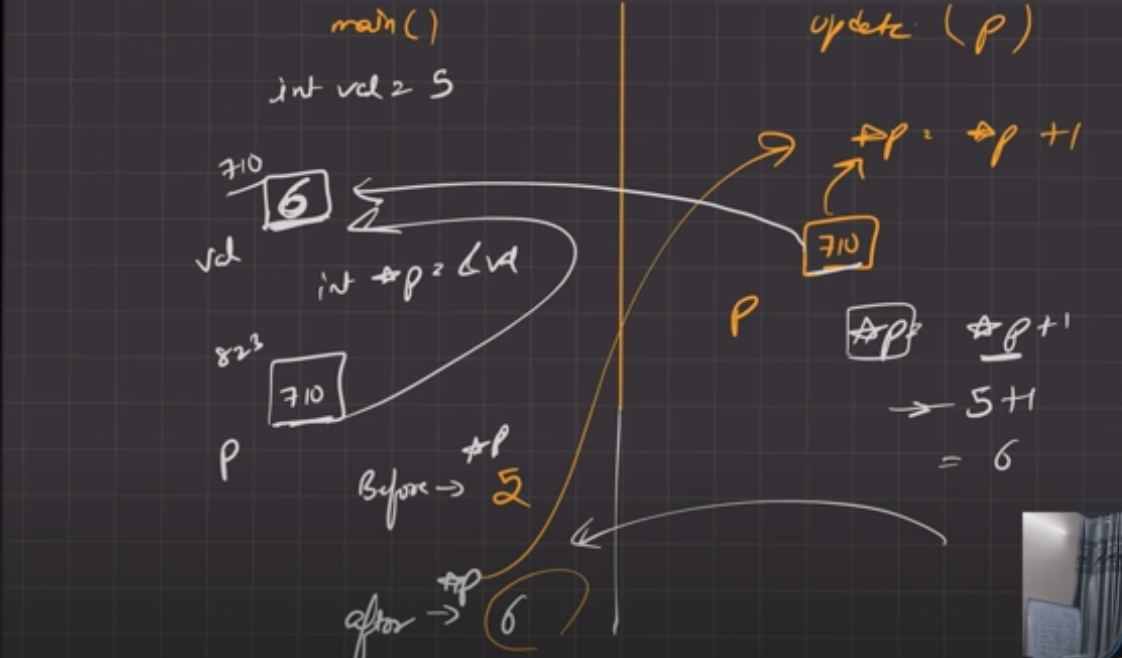 main()
int val = 5
710
6
val
int *p = &val
823
710
p
*p
Before → 5
*p
after → 6
update (p)
*p = *p + 1
710
p
*p = *p + 1
→ 5+1
= 6